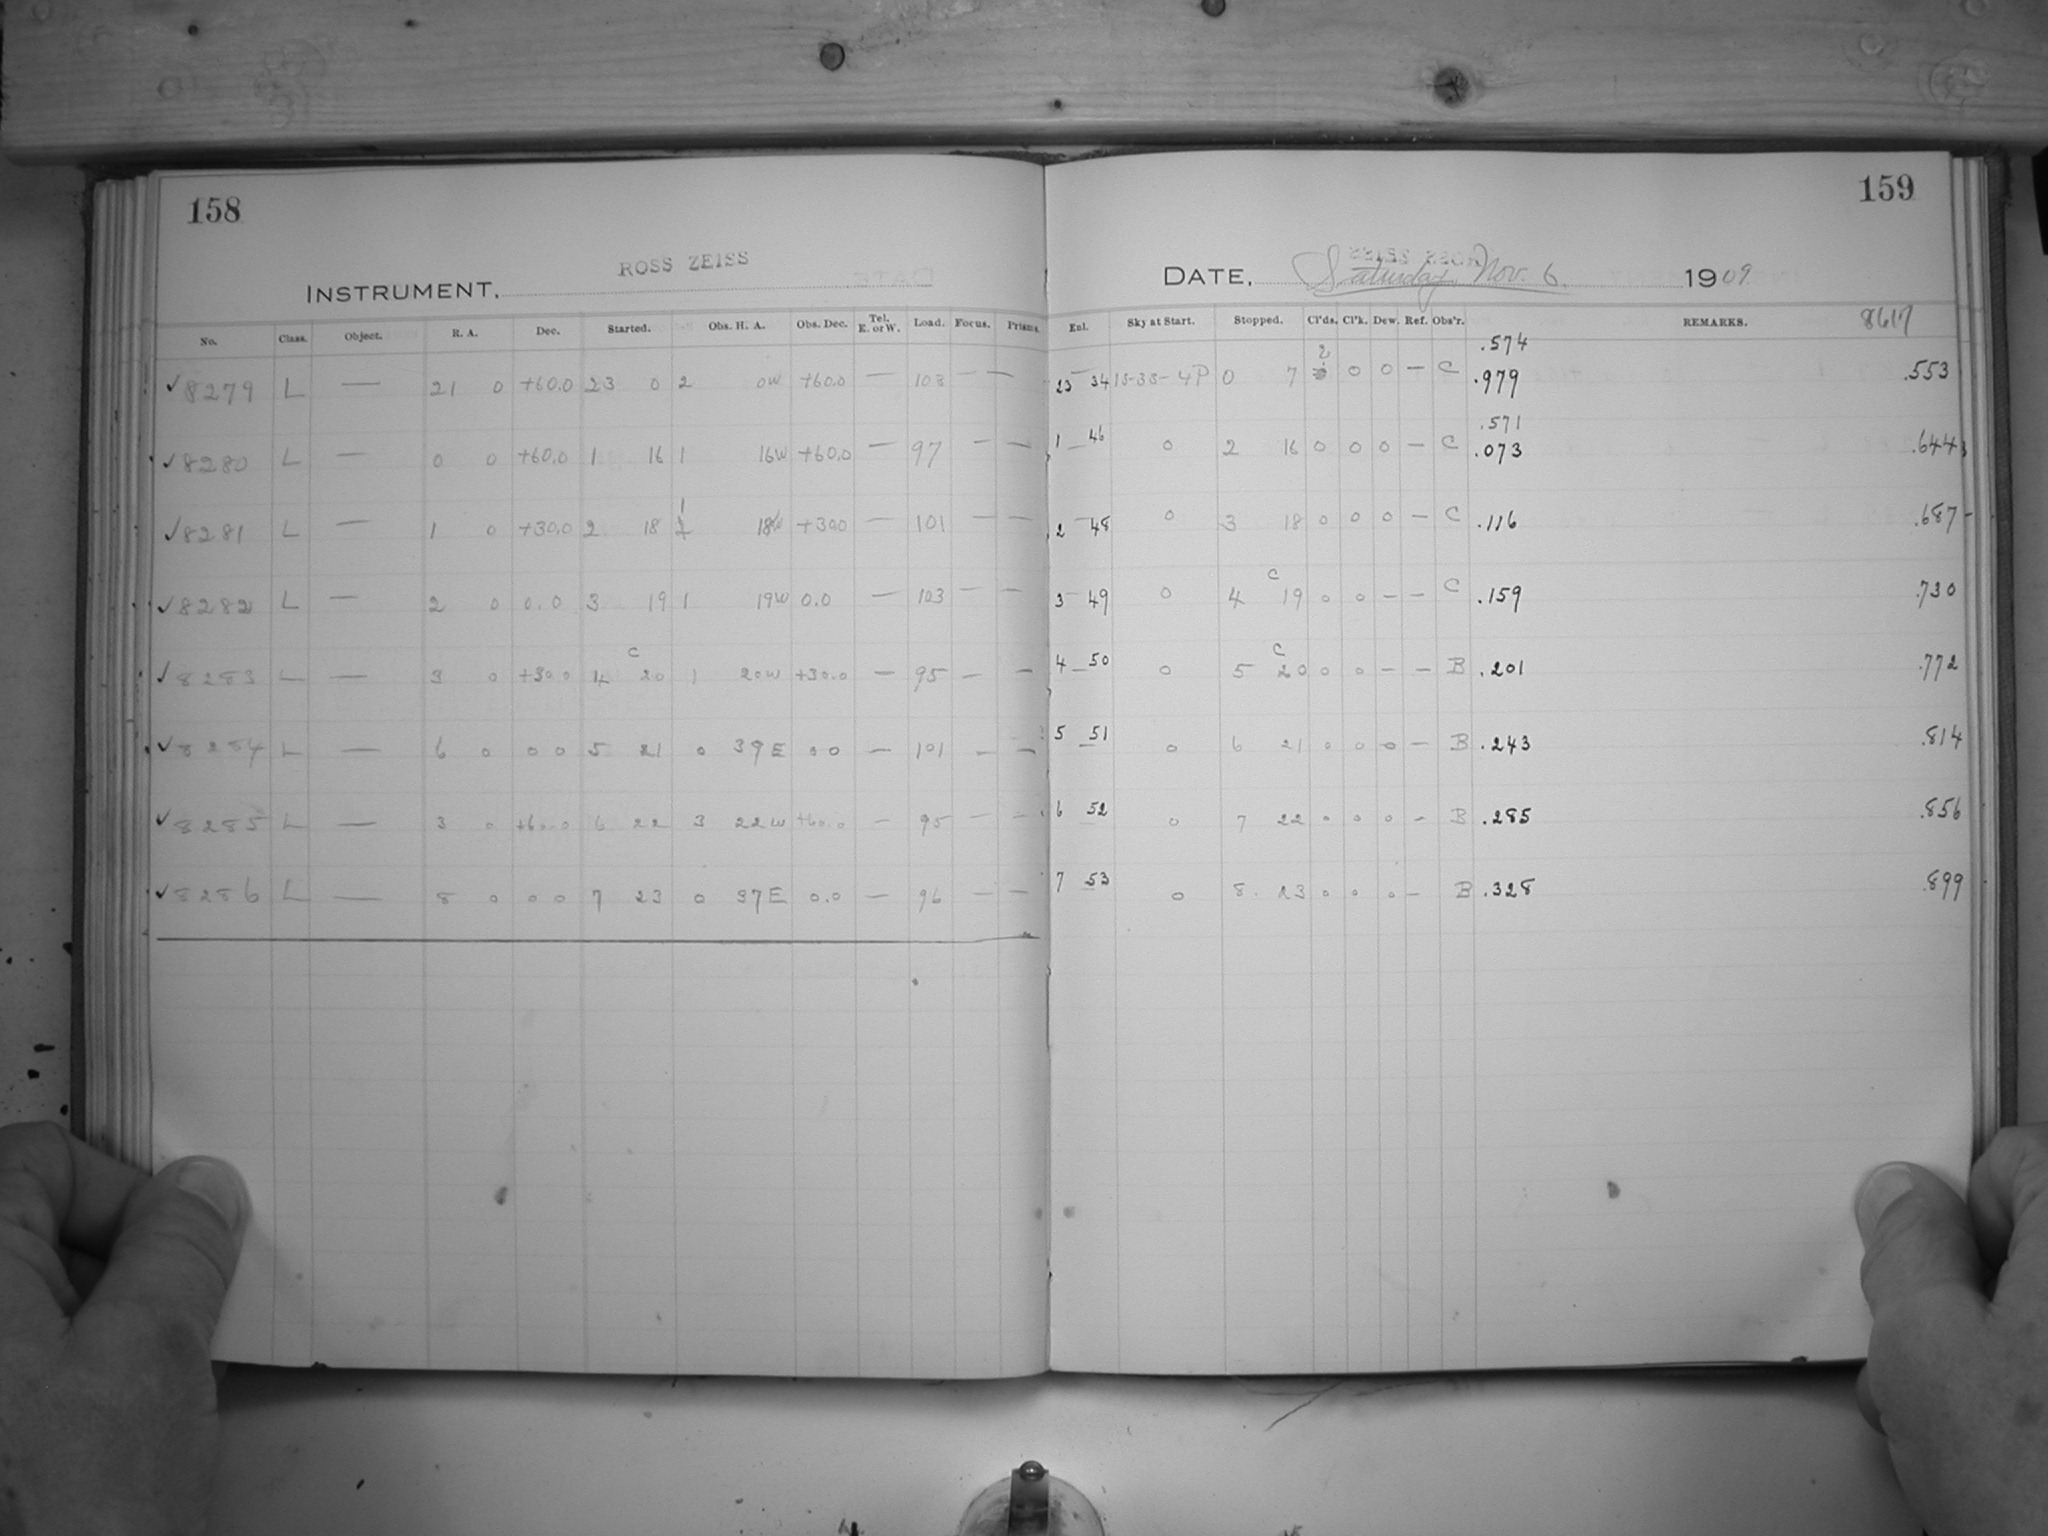 158
ROSS ZEISS
INSTRUMENT,
No. Class. Object. R. A. Dec. Started. Obs. H. A. Obs. Dec. Tel. E. or W. Load. Focus. Prisms.
✓8279 L — 21 0 +60.0 23 0 2 0W +60.0 — 103 — —
✓8280 L — 0 0 +60.0 1 16 1 16W +60.0 — 97 — —
✓8281 L — 1 0 +30.0 2 18 1 18W +30.0 — 101 — —
✓8282 L — 2 0 0.0 3 19 1 19W 0.0 — 103 — —
✓8283 L — 3 0 +30.0 4 C 20 1 20W +30.0 — 95 — —
✓8284 L — 6 0 0 0 5 21 0 39E 0 0 — 101 — —
✓8285 L — 3 0 +60.0 6 22 3 22W +60.0 — 95 — —
✓8286 L — 8 0 0 0 7 23 0 37E 0.0 — 96 — —
159
DATE, Saturday, Nov. 6. 1909
Enl. Sky at Start. Stopped. Cl'ds. Cl'k. Dew. Ref. Obs'r. REMARKS. 8617
.574
23 34 4P 0 7 2 0 0 — C .979 .553
.571
1 46 0 2 16 0 0 0 — C .073 .644
2 48 0 3 18 0 0 0 — C .116 .687
3 49 0 4 C 19 0 0 — — C .159 .730
4 50 0 5 C 20 0 0 — — B .201 .772
5 51 0 6 21 0 0 0 — B .243 .814
6 52 0 7 22 0 0 0 — B .285 .856
7 53 0 8. 23 0 0 0 — B .328 .899